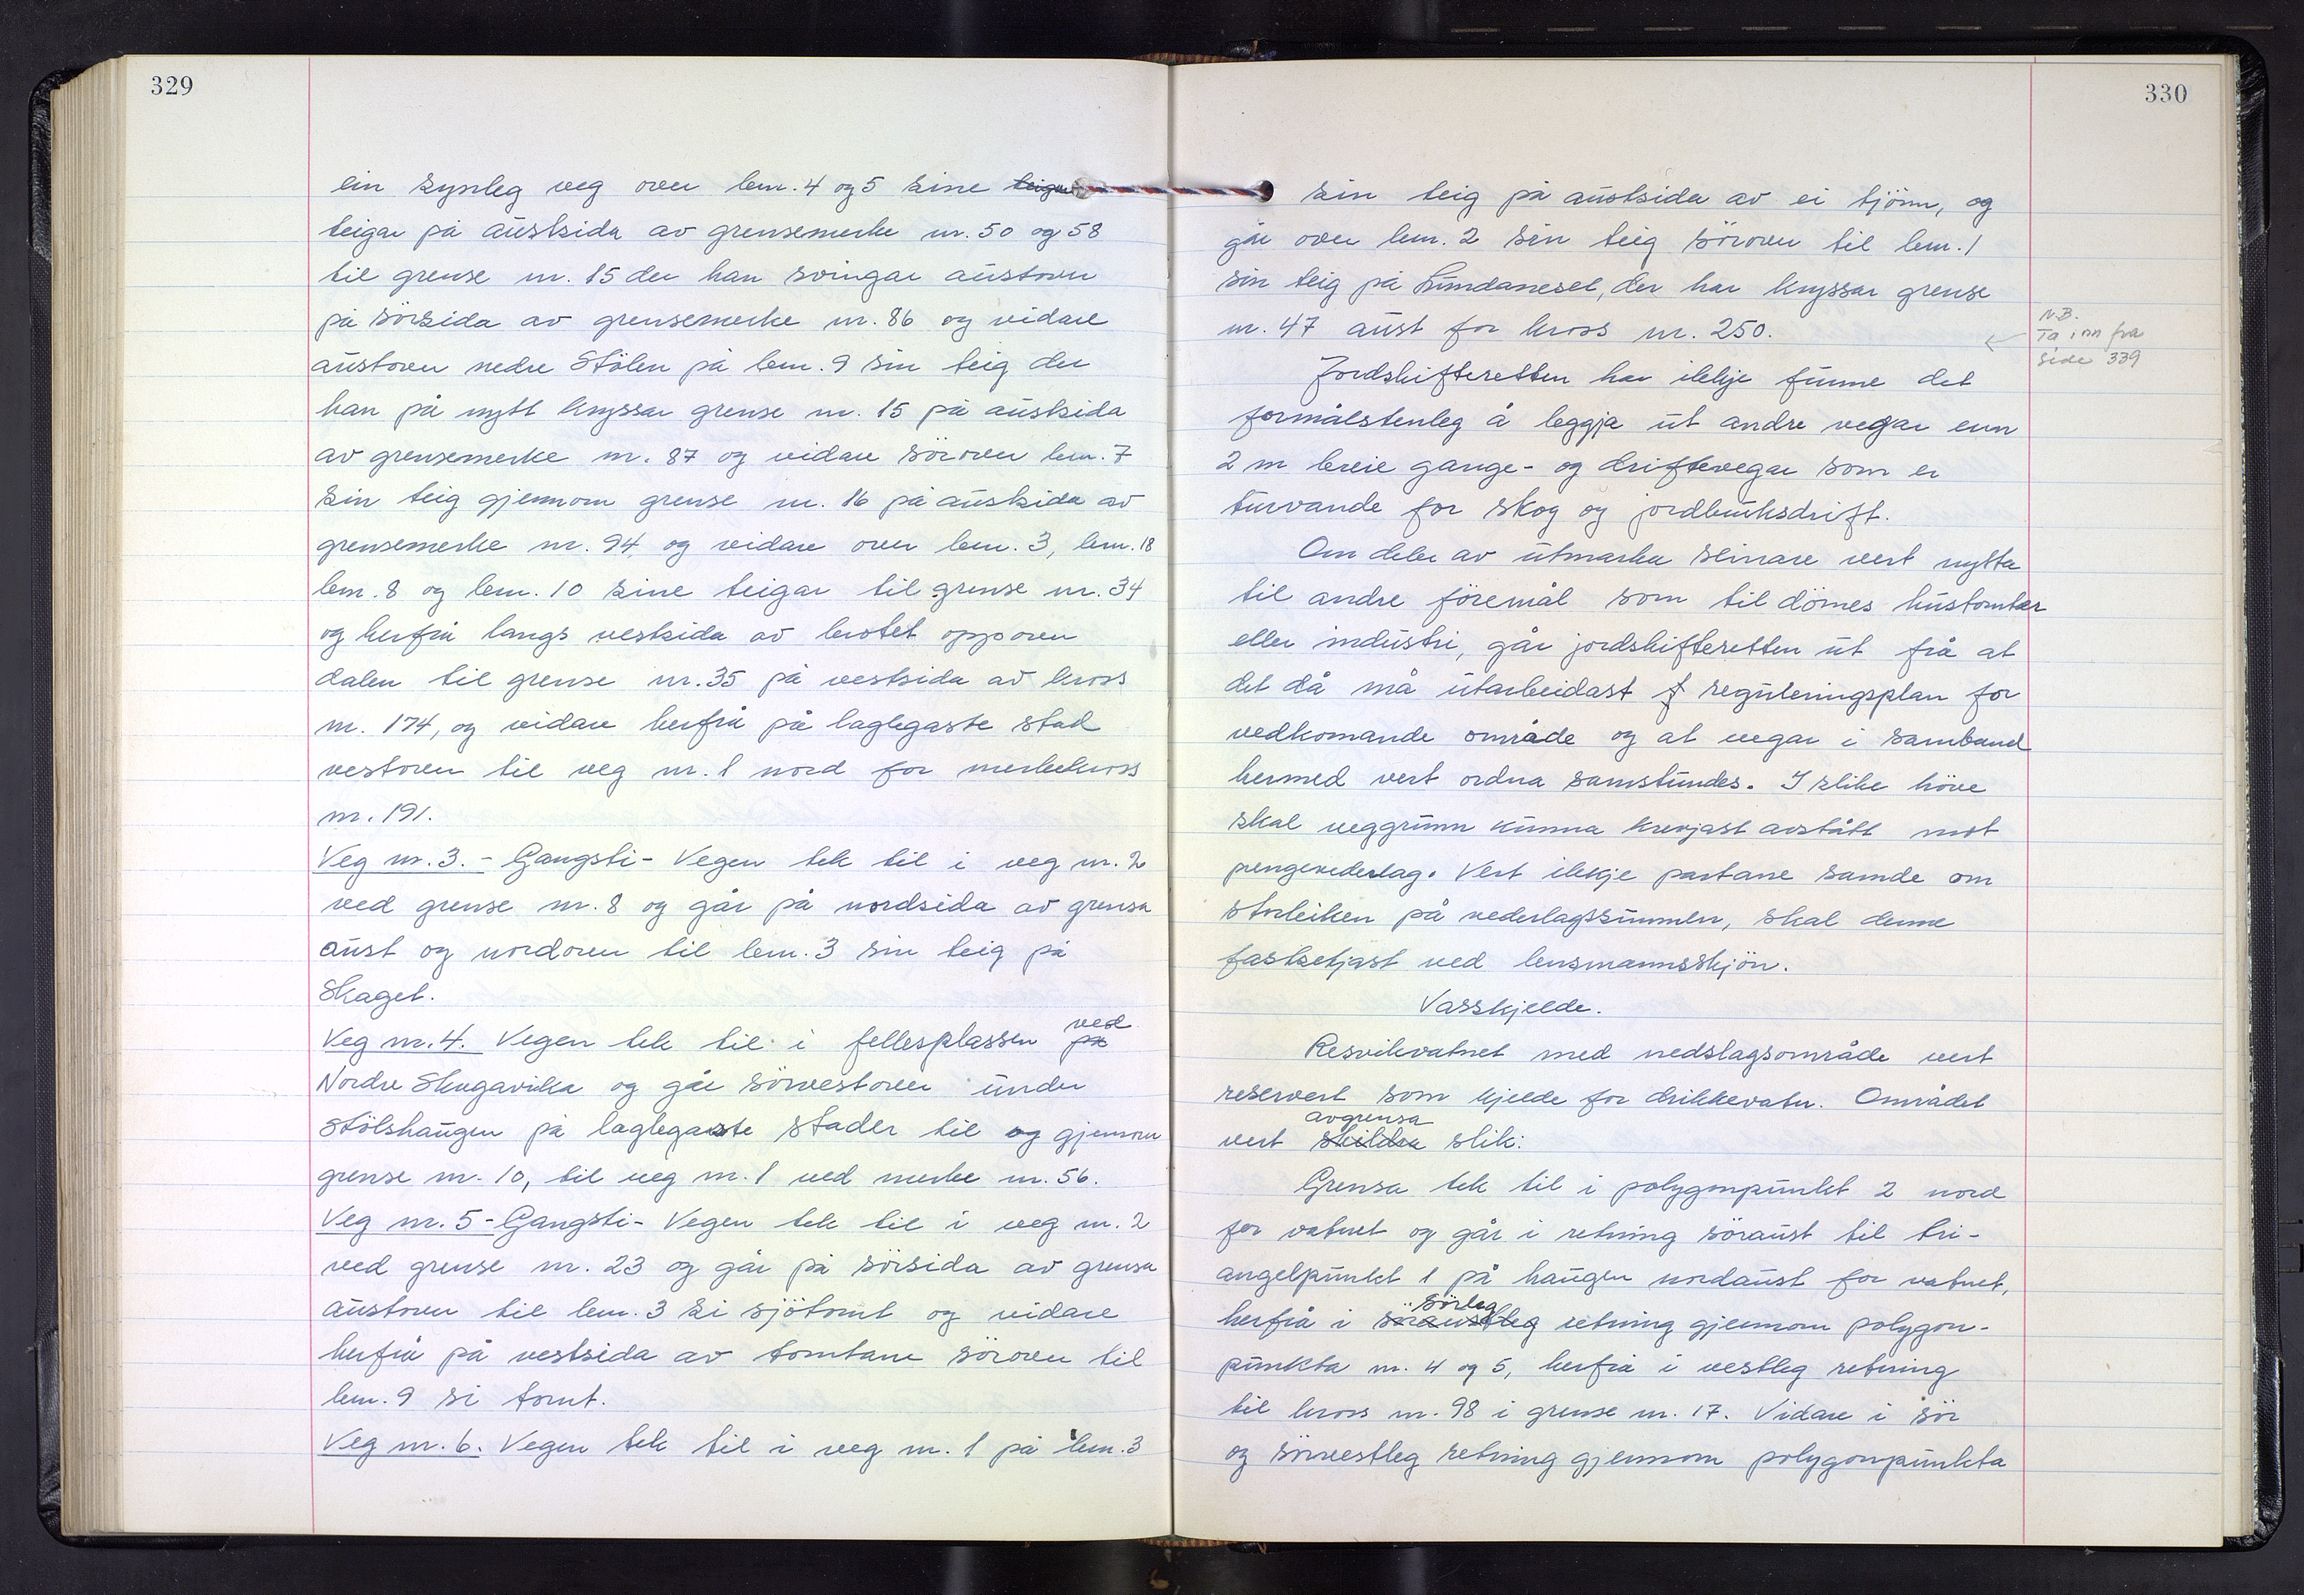 329
ein synleg veg over lem. 4 og 5 sine teigar
teigar på austsida av grensemerke nr. 50 og 58
til grense nr. 15 der han svingar austover
på sörsida av grensemerke nr. 86 og vidare
austover nedre Stölen på lem. 9 sin teig der
han på nytt kryssar grense nr. 15 på austsida
av grensemerke nr. 87 og vidare sörover lem. 7
sin teig gjennom grense nr. 16 på austsida av
grensemerke nr. 94, og vidare over lem. 3, lem. 18
lem. 8 og lem. 10 sine teigar til grense nr. 34
og herfrå langs vestsida av brotet oppover
dalen til grense nr. 35 på vestsida av kross
nr. 174, og vidare herfrå på laglegaste stad
vestover til veg nr. 1 nord for merkekross
nr. 191.
Veg nr. 3. - Gangsti - Vegen tek til i veg nr. 2
ved grense nr. 8 og går på nordsida av grensa
aust og nordover til lem. 3 sin teig på
Skaget.
Veg nr. 4. Vegen tek til i fellesplassen på ved
Nordre Skugavika og går sörvestover under
Stölshaugen på laglegaste stader til og gjennom
grense nr. 10, til veg nr. 1 ved merke nr. 56.
Veg nr. 5 - Gangsti - Vegen tek til i veg nr. 2
ved grense nr. 23 og går på sörsida av grensa
austover til lem. 3 si sjötomt og vidare
herfrå på vestsida av tomtane sörover til
lem. 9 si tomt.
Veg nr. 6. Vegen tek til i veg nr. 1 på lem. 3
330
sin teig på austsida av ei tjönn, og
går over lem. 2 sin teig sörover til lem. 1
sin teig på Lundaneset, der han kryssar grense
nr. 47 aust for kross nr. 250.
N.B.
Ta inn fra
side 339
Jordskifteretten har ikkje funne det
formålstenleg å leggja ut andre vegar enn
2 m breie gange- og driftevegar som er
turvande for skog og jordbruksdrift.
Om deler av utmarka seinare vert nytta
til andre föremål som til dömes hustomter
eller industri, går jordskifteretten ut frå at
det då må utarbeidast f reguleringsplan for
vedkomande område og at vegar i samband
hermed vert ordna samstundes. I slike höve
skal veggrunn kunna krevjast avstått mot
pengevederlag. Vert ikkje partane samde om
storleiken på vederlagssummen, skal denne
fastsetjast ved lensmannsskjön.
Vasskjelde.
Resvikvatnet med nedslagsområde vert
reservert som kjelde for drikkevatn. Området
vert skildra avgrensa slik:
Grensa tek til i polygonpunkt 2 nord
for vatnet og går i retning söraust til tri-
angelpunkt 1 på haugen nordaust for vatnet,
herfrå i söraustleg sörleg retning gjennom polygon-
punkta nr. 4 og 5, herfrå i vestleg retning
til kross nr. 98 i grense nr. 17. Vidare i sör
og sörvestleg retning gjennom polygonpunkta